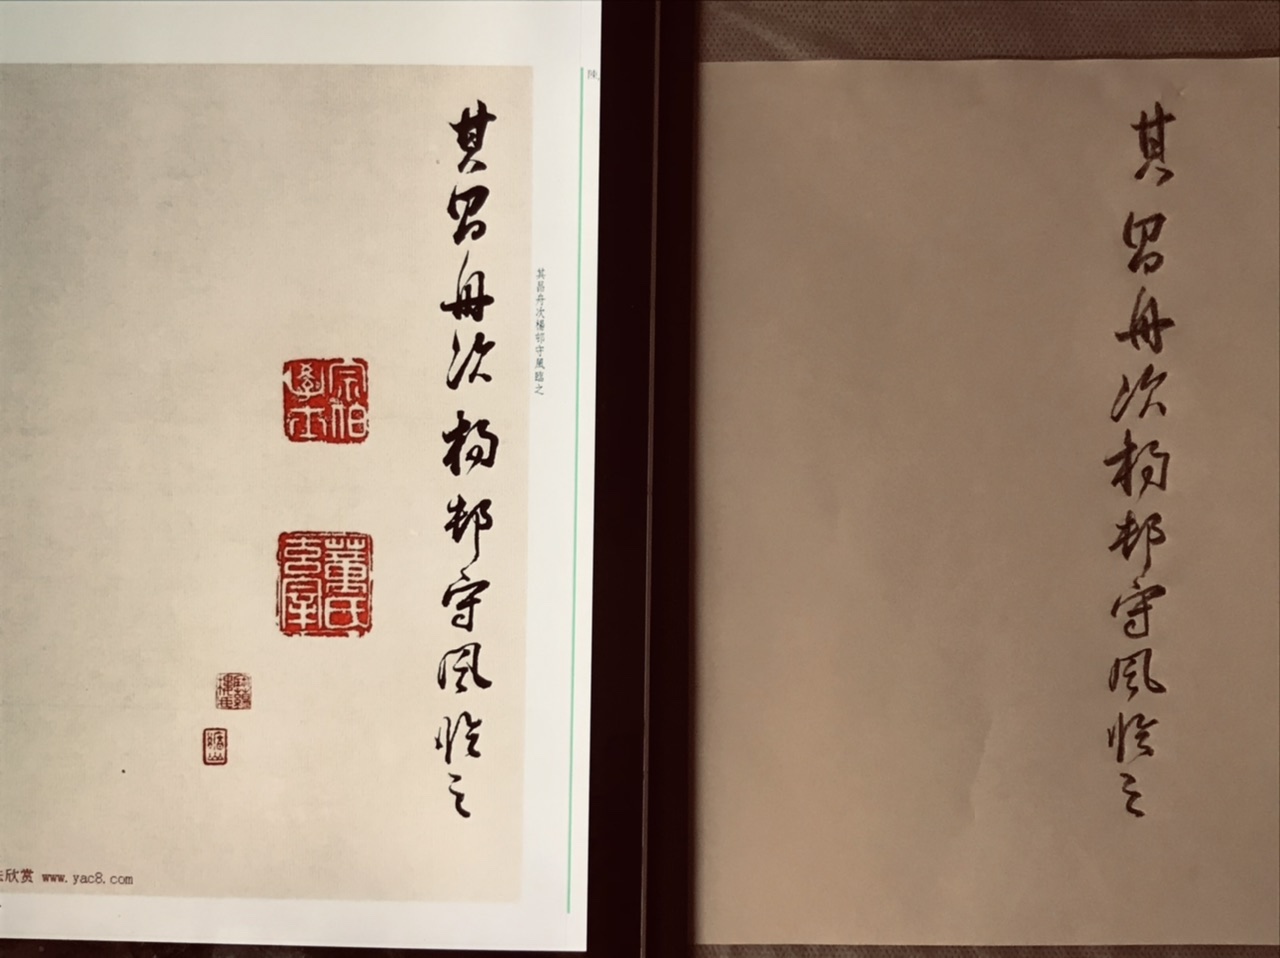 陕
其昌舟次楊邨守風臨之
其昌舟次楊邨守風臨之
宗伯學士
董氏玄宰
法欣赏 www.yac8.com
其昌舟次楊邨守風臨之